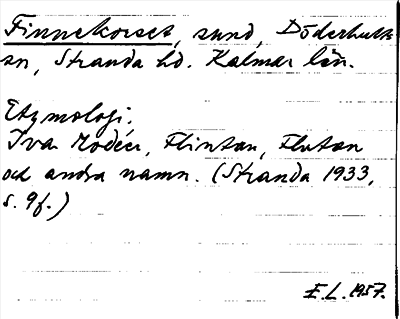 Finnekorset, sund, Döderhults
sn, Stranda hd. Kalmar län.
Etymologi.
Ivar Modéer, Flintan, Flatan
och andra namn. (Stranda 1933,
s. 9f.)
E.L. 1957.